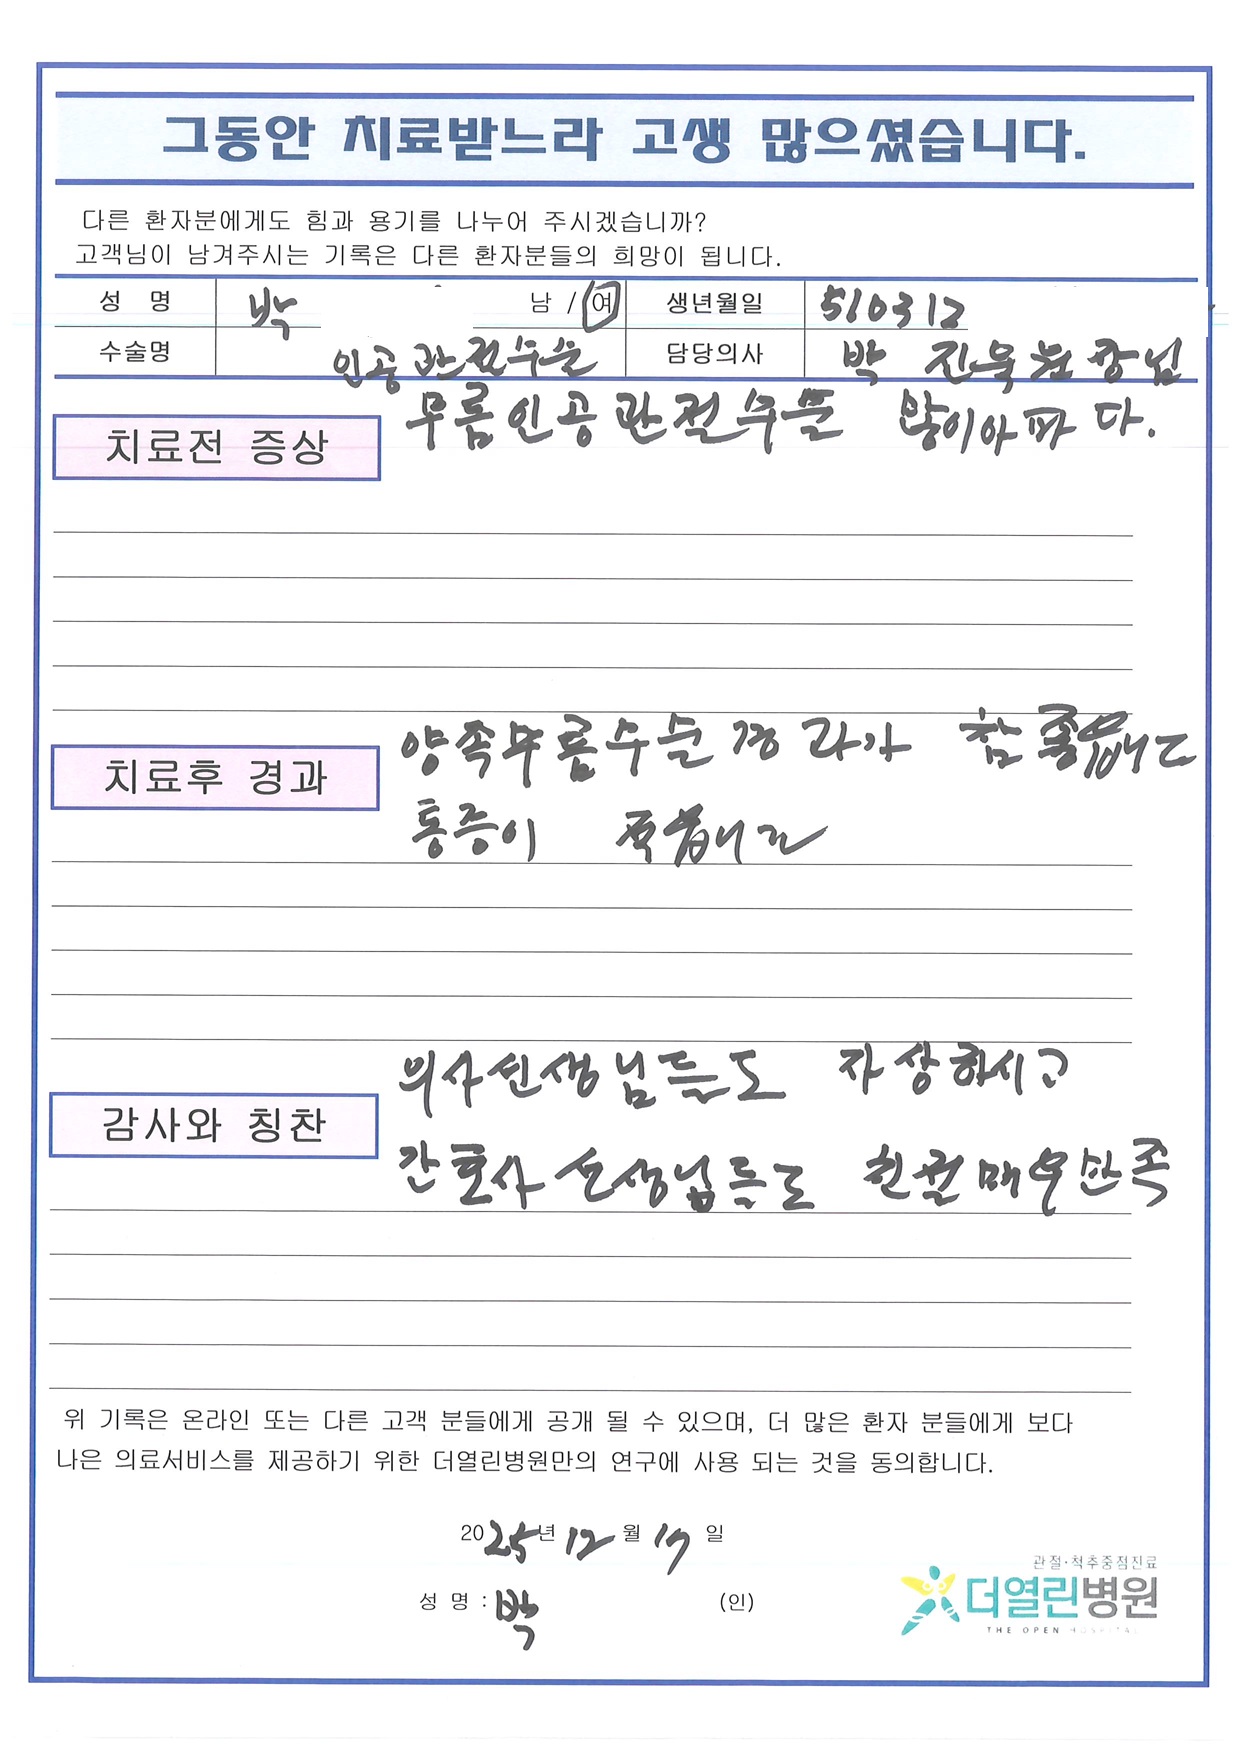 그동안 치료받느라 고생 많으셨습니다.
다른 환자분에게도 힘과 용기를 나누어 주시겠습니까?
고객님이 남겨주시는 기록은 다른 환자분들의 희망이 됩니다.
성 명 박 남 / 여 생년월일 510312
수술명 인공관절수술 담당의사 박 진욱 원장님
치료전 증상 무릎인공관절수술 많이아파다.
치료후 경과 양쪽무릎수술경과가 참 좋습니다
통증이 적습니다
감사와 칭찬 의사선생님들도 자상하시고
간호사선생님들도 친절매우만족
위 기록은 온라인 또는 다른 고객 분들에게 공개 될 수 있으며, 더 많은 환자 분들에게 보다
나은 의료서비스를 제공하기 위한 더열린병원만의 연구에 사용 되는 것을 동의합니다.
2025년 12월 17일
성 명 : 박 (인)
관절·척추중점진료
더열린병원
THE OPEN HOSPITAL